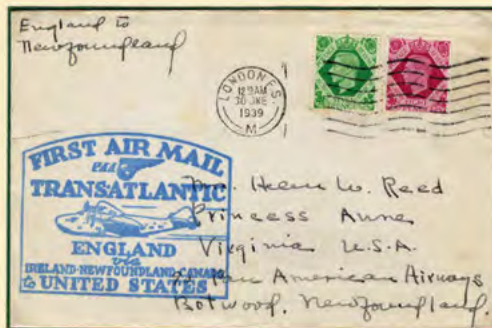 England to
Newfoundland
LONDON F.S.
12 15 AM
30 JNE
1939
M
FIRST AIR MAIL
via
TRANSATLANTIC
ENGLAND
via
IRELAND-NEWFOUNDLAND-CANADA
to UNITED STATES
Mrs. Helen W. Reed
Princess Anne
Virginia U.S.A.
Pan American Airways
Botwood, Newfoundland.